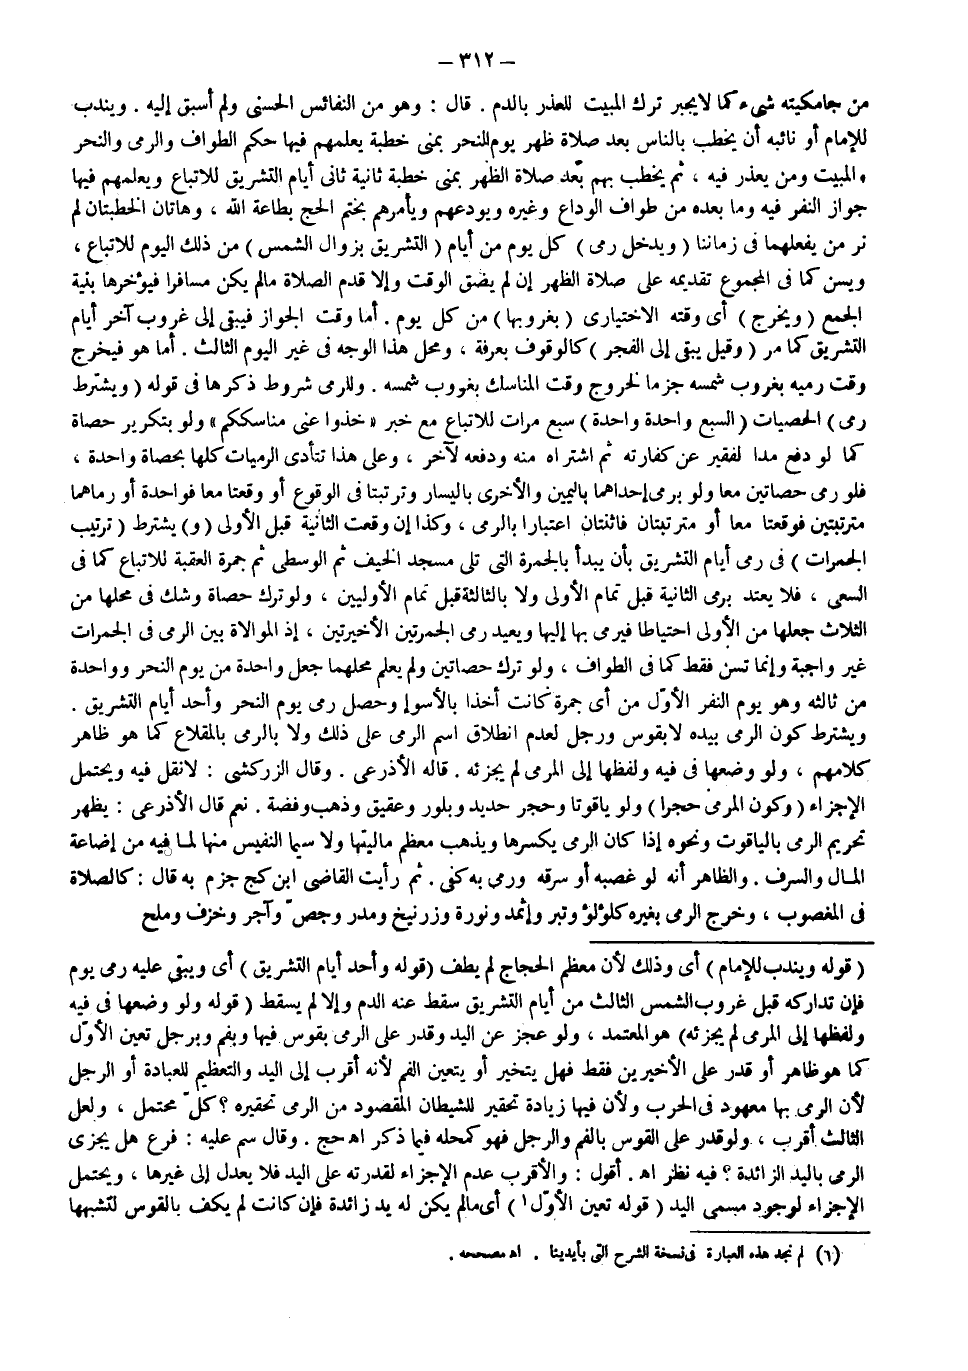 – ٣١٢ –
من جامكيته شىء كما لايجبر ترك المبيت للعذر بالدم . قال : وهو من النفائس الحسنى ولم أسبق إليه . ويندب
للإمام أو نائبه أن يخطب بالناس بعد صلاة ظهر يوم النحر بمنى خطبة يعلمهم فيها حكم الطواف والرمى والنحر
والمبيت ومن يعذر فيه ، ثم يخطب بهم بعد صلاة الظهر بمنى خطبة ثانية ثانى أيام التشريق للاتباع ويعلمهم فيها
جواز النفر فيه وما بعده من طواف الوداع وغيره ويودعهم ويأمرهم بختم الحج بطاعة الله ، وهاتان الخطبتان لم
نر من يفعلهما فى زماننا ( ويدخل رمى ) كل يوم من أيام ( التشريق بزوال الشمس ) من ذلك اليوم للاتباع ،
ويسن كما فى المجموع تقديمه على صلاة الظهر إن لم يضق الوقت وإلا قدم الصلاة مالم يكن مسافرا فيؤخرها بنية
الجمع ( ويخرج ) أى وقته الاختيارى ( بغروبها ) من كل يوم . أما وقت الجواز فيبقى إلى غروب آخر أيام
التشريق كما مر ( وقيل يبقى إلى الفجر ) كالوقوف بعرفة ، ومحل هذا الوجه فى غير اليوم الثالث . أما هو فيخرج
وقت رميه بغروب شمسه جزما لخروج وقت المناسك بغروب شمسه . وللرمى شروط ذكرها فى قوله ( ويشترط
رمى ) الحصيات ( السبع واحدة واحدة ) سبع مرات للاتباع مع خبر « خذوا عنى مناسككم » ولو بتكرير حصاة
كما لو دفع مدا لفقير عن كفارته ثم اشتراه منه ودفعه لآخر ، وعلى هذا تتأدى الرميات كلها بحصاة واحدة ،
فلو رمى حصاتين معا ولو برمى إحداهما باليمين والأخرى باليسار وترتبتا فى الوقوع أو وقعتا معا فواحدة أو رماهما
مترتبتين فوقعتا معا أو مترتبتان فاثنتان اعتبارا بالرمى ، وكذا إن وقعت الثانية قبل الأولى ( و ) يشترط ( ترتيب
الجمرات ) فى رمى أيام التشريق بأن يبدأ بالجمرة التى تلى مسجد الخيف ثم الوسطى ثم جمرة العقبة للاتباع كما فى
السعى ، فلا يعتد برمى الثانية قبل تمام الأولى ولا بالثالثة قبل تمام الأوليين ، ولو ترك حصاة وشك فى محلها من
الثلاث جعلها من الأولى احتياطا فيرمى بها إليها ويعيد رمى الجمرتين الأخيرتين ، إذ الموالاة بين الرمى فى الجمرات
غير واجبة وإنما تسن فقط كما فى الطواف ، ولو ترك حصاتين ولم يعلم محلهما جعل واحدة من يوم النحر وواحدة
من ثالثه وهو يوم النفر الأوّل من أى جمرة كانت أخذا بالأسوإ وحصل رمى يوم النحر وأحد أيام التشريق .
ويشترط كون الرمى بيده لابقوس ورجل لعدم انطلاق اسم الرمى على ذلك ولا بالرمى بالمقلاع كما هو ظاهر
كلامهم ، ولو وضعها فى فيه ولفظها إلى المرمى لم يجزئه . قاله الأذرعى . وقال الزركشى : لانقل فيه ويحتمل
الإجزاء ( وكون المرمى حجرا ) ولو ياقوتا وحجر حديد وبلور وعقيق وذهب وفضة . نعم قال الأذرعى : يظهر
تحريم الرمى بالياقوت ونحوه إذا كان الرمى يكسرها ويذهب معظم ماليتها ولا سيما النفيس منها لما فيه من إضاعة
المال والسرف . والظاهر أنه لو غصبه أو سرقه ورمى به كفى . ثم رأيت القاضى ابن كج جزم به قال : كالصلاة
فى المغصوب ، وخرج الرمى بغيره كلؤلؤ وتبر وإثمد ونورة وزرنيخ ومدر وجصّ وآجر وخزف وملح
( قوله ويندب للإمام ) أى وذلك لأن معظم الحجاج لم يطف ( قوله وأحد أيام التشريق ) أى ويبقى عليه رمى يوم
فإن تداركه قبل غروب الشمس الثالث من أيام التشريق سقط عنه الدم وإلا لم يسقط ( قوله ولو وضعها فى فيه
ولفظها إلى المرمى لم يجزئه ) هو المعتمد ، ولو عجز عن اليد وقدر على الرمى بقوس فيها وبفم وبرجل تعين الأوّل
كما هو ظاهر أو قدر على الأخيرين فقط فهل يتخير أو يتعين الفم لأنه أقرب إلى اليد والتعظيم للعبادة أو الرجل
لأن الرمى بها معهود فى الحرب ولأن فيها زيادة تحقير للشيطان المقصود من الرمى تحقيره ؟ كلّ محتمل ، ولعل
الثالث أقرب ، ولو قدر على القوس بالفم والرجل فهو كمحله فيما ذكر اه حج . وقال سم عليه : فرع هل يجزى
الرمى باليد الزائدة ؟ فيه نظر اه . أقول : والأقرب عدم الإجزاء لقدرته على اليد فلا يعدل إلى غيرها ، ويحتمل
الإجزاء لوجود مسمى اليد ( قوله تعين الأوّل ١ ) أى مالم يكن له يد زائدة فإن كانت لم يكف بالقوس لشبهها
(٦) لم نجد هذه العبارة فى نسخة الشرح التى بأيدينا . اه مصححه .